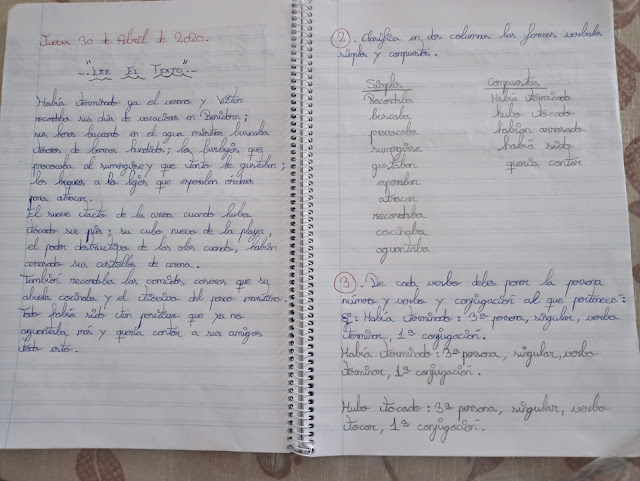 Jueves 30 de Abril de 2020.
"LEE EL TEXTO"
Había terminado ya el verano y Víctor
recordaba sus días de vacaciones en Benidorm;
sus horas buceando en el agua mientras buscaba
tesoros de barcos hundidos; las burbujas que
provocaba al sumergirse y que tanto le gustaban;
los buques a lo lejos que esperaban órdenes
para atracar.
El suave tacto de la arena cuando hubo
tocado sus pies; su cubo nuevo de la playa,
el poder destructivo de las olas cuando, habían
arrasado sus castillos de arena.
También recordaba las comidas caseras que su
abuela cocinaba y el itinerario del paseo marítimo.
Todo había sido tan positivo que ya no
aguantaba más y quería contar a sus amigos
todo esto.
2. Clasifica en dos columnas las formas verbales
simples y compuestas.
Simples Compuestas
Recordaba Había terminado
buscaba hubo tocado
provocaba habían arrasado
sumergirse había sido
gustaban quería contar
esperaban
atracar
recordaba
cocinaba
aguantaba
3. De cada verbo debes poner la persona
número y verbo y conjugación al que pertenece:
Ej: Había terminado: 3ª persona, singular, verbo
terminar, 1ª conjugación.
Había terminado: 3ª persona, singular, verbo
terminar, 1ª conjugación.
Hubo tocado: 3ª persona, singular, verbo
tocar, 1ª conjugación.